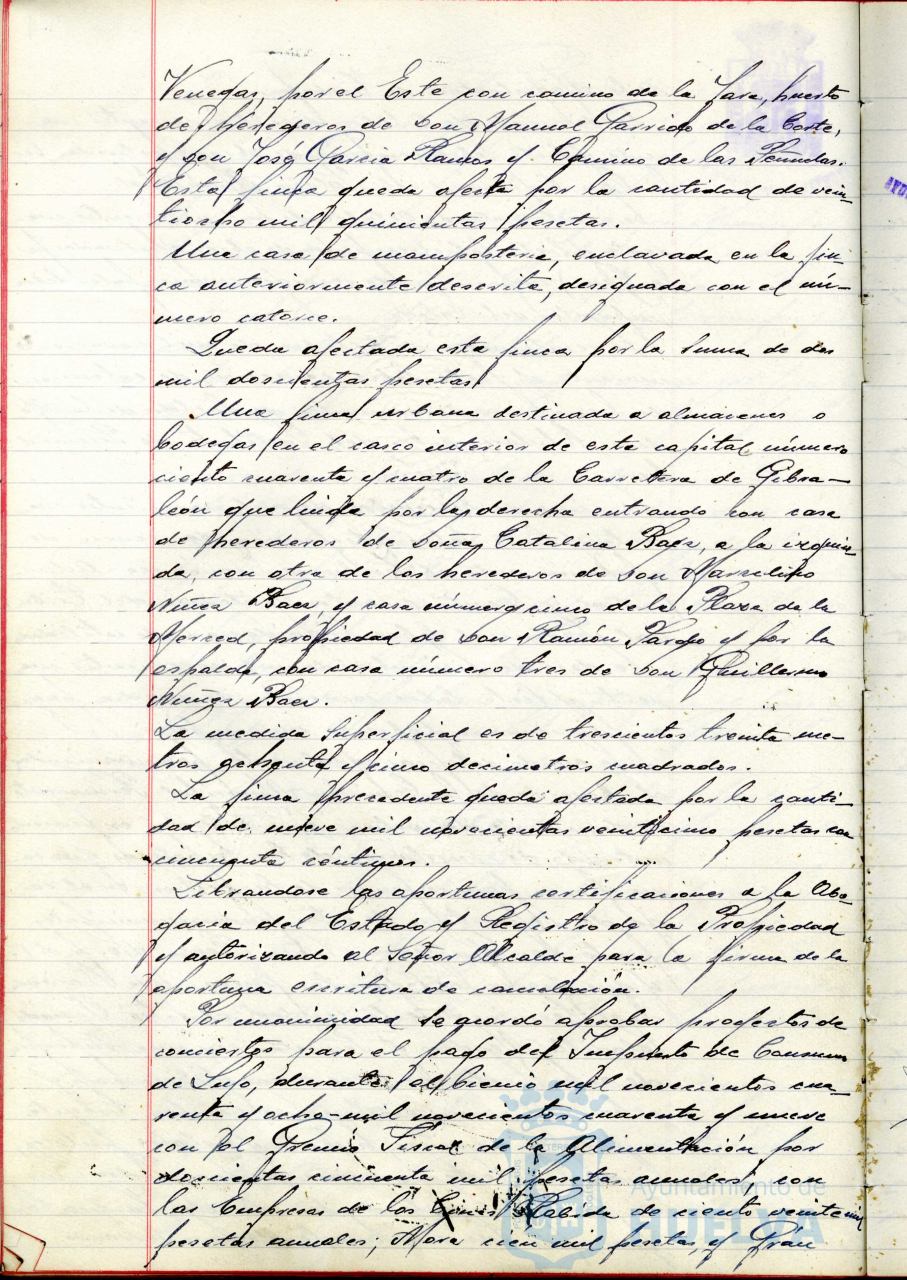 Venegas, por el Este con camino de la Jara, huerto
de herederos de Don Manuel Garrido de la Corte,
y don José Garcia Ramos y Camino de las
Esta finca queda afecta por la cantidad de vein-
tiocho mil quinientas pesetas.
Una casa de mamposteria, enclavada en la fin-
ca anteriormente descrita, designada con el nú-
mero catorce.
Queda afectada esta finca por la suma de dos
mil doscientas pesetas.
Una finca urbana destinada a almacenes o
bodegas en el casco interior de esta capital, número
ciento cuarenta y cuatro de la Carretera de Gibra-
león que linda por la derecha entrando con casa
de herederos de Doña Catalina Baez, a la izquier-
da, con otra de los herederos de Don Marcelino
Nuñez Baez, y casa número cinco de la Plaza de la
Merced, propiedad de Don Ramón Pardo y por la
espalda, con casa número tres de Don Guillermo
Nuñez Baez.
La medida superficial es de trescientos treinta me-
tros ochenta y cinco decimetros cuadrados.
La finca precedente queda afectada por la canti-
dad de nueve mil novecientas veinticinco pesetas con
cincuenta céntimos.
Librandose las oportunas certificaciones a la Abo-
gacia del Estado y Registro de la Propiedad
y autorizando al Señor Alcalde para la firma de la
oportuna escritura de cancelación.
Por unanimidad se acordó aprobar proyectos de
conciertos para el pago del Impuesto de Consumos
de Lujo, durante el bienio mil novecientos cua-
renta y ocho-mil novecientos cuarenta y nueve
con el Gremio Fiscal de la Alimentación por
doscientas cincuenta mil pesetas anuales, con
las Empresas de los Cines Rabida de ciento veinte mil
pesetas anuales; Mora cien mil pesetas, y Gran
Ayuntamiento de
HUELVA